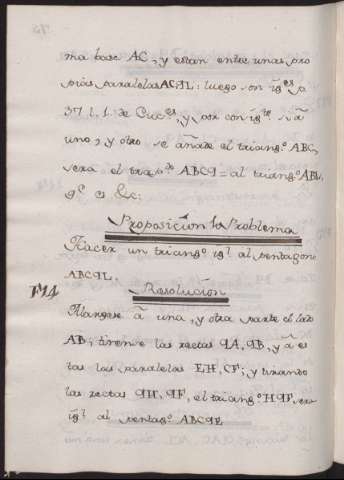 ma base AC, y estan entre unas pro
pias paralelas AC, IL: luego son ig.es p.r
37 l. 1. de Euc.es, y por con ig.te si a
uno, y otro se añade el triang.o ABC,
sera el trap.o ABCI = al triang.o ABL,
q.e es &c.
Proposición 1.a Problema
Hacer un triang.o ig.l al pentagono
ABCIL.
F14
Resolución
Alargese a una, y otra parte el lado
AB; tirense las rectas IA, IB, y a es
tas las paralelas EH, CF; y tirando
las rectas IH, IF, el triang.o HIF, sera
ig.l al pentag.o ABCIE